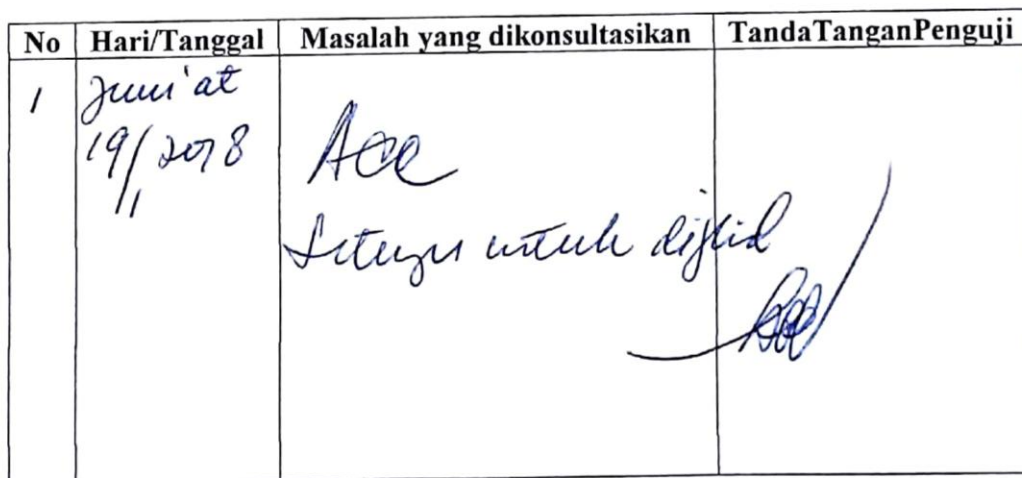 No Hari/Tanggal Masalah yang dikonsultasikan TandaTanganPenguji
1 Jum'at
19/1 2018 Acc
Setuju untuk dijilid